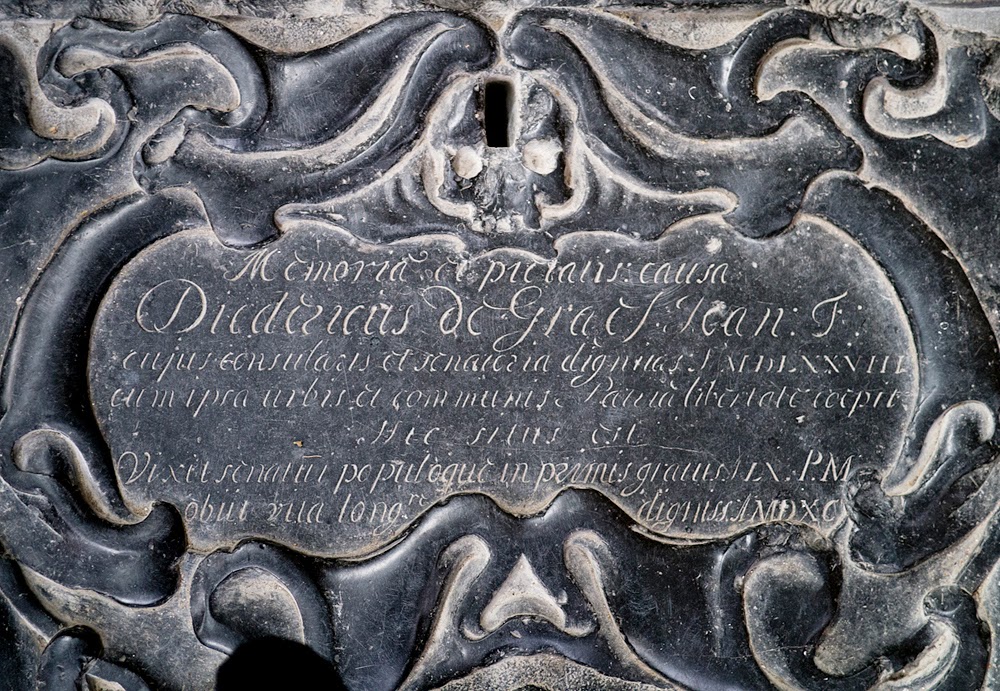 Memoriæ et pietatis causa
Diedericus de Graef Jean: F:
cujus consularis et senatoria dignitas A MDLXXVIII
cum ipsa urbis et communis Patriæ libertate coepit
Hic situs est
Vixit senatui populoque in primis gratus A LX. P.M
obiit vita long.e digniss A MDXC